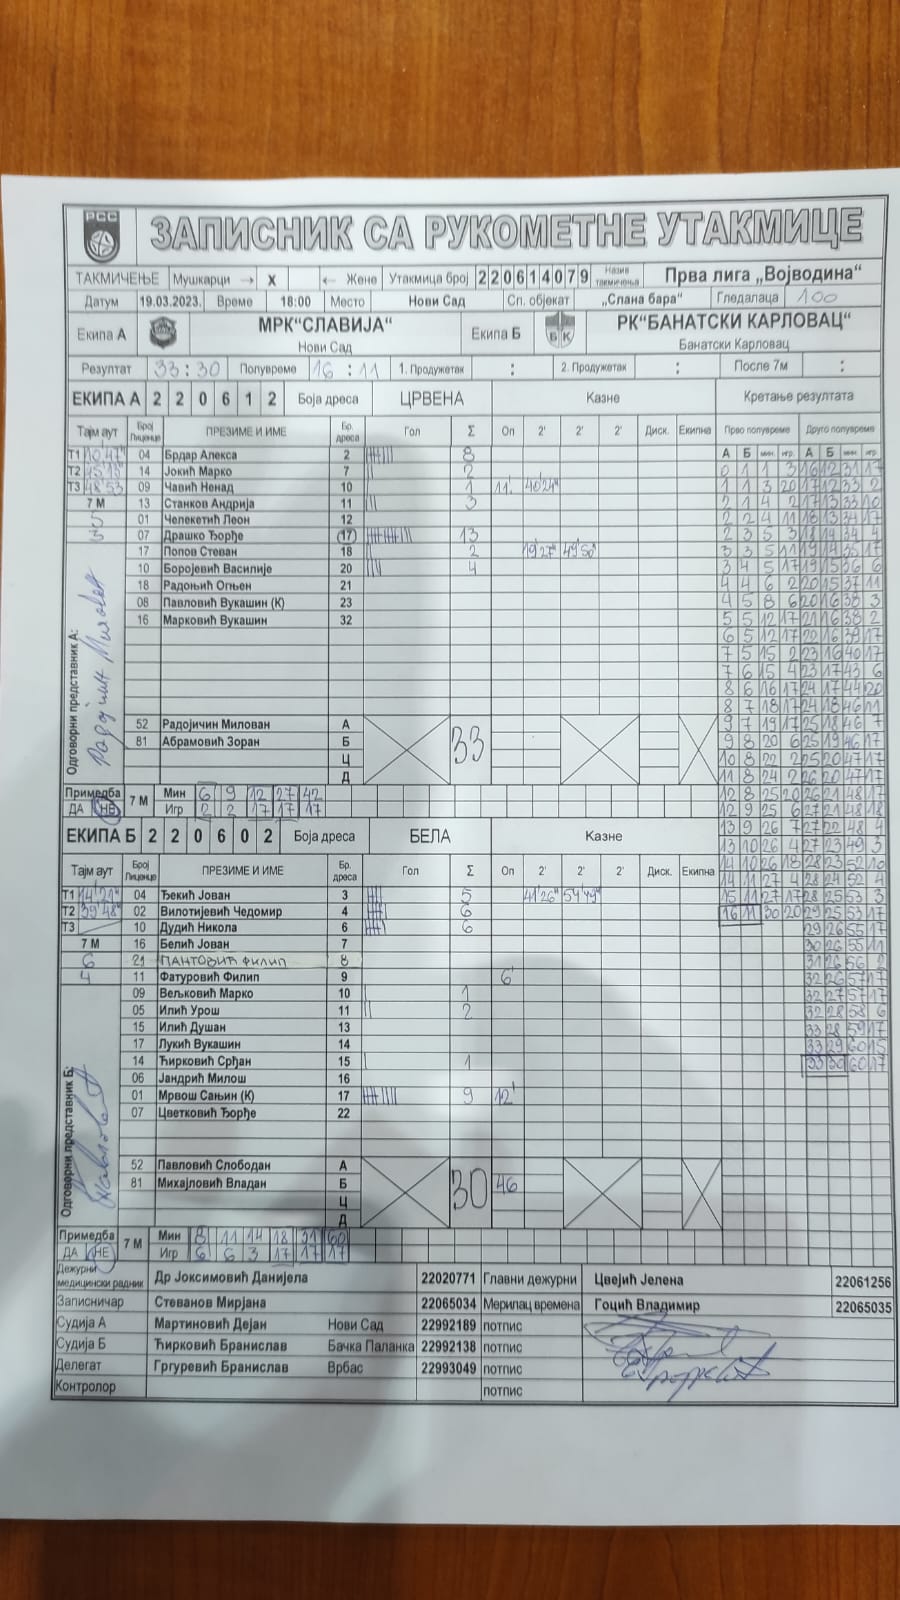 РСС
ЗАПИСНИК СА РУКОМЕТНЕ УТАКМИЦЕ
ТАКМИЧЕЊЕ Мушкарци → X ← Жене Утакмица број 220614079 Назив такмичења Прва лига „Војводина“
Датум 19.03.2023. Време 18:00 Место Нови Сад Сп. објекат „Слана бара“ Гледалаца 100
Екипа А МРК“СЛАВИЈА“ Екипа Б БК РК“БАНАТСКИ КАРЛОВАЦ“
Нови Сад Банатски Карловац
Резултат 33:30 Полувреме 16:11 1. Продужетак : 2. Продужетак : После 7м :
ЕКИПА А 220612 Боја дреса ЦРВЕНА Казне Кретање резултата
Тајм аут Број Лиценце ПРЕЗИМЕ И ИМЕ Бр. дреса Гол Σ Оп 2' 2' 2' Диск. Екипна Прво полувреме Друго полувреме
А Б мин. игр. А Б мин. игр.
Т1 10'47" 04 Брдар Алекса 2 8
Т2 14 Јокић Марко 7 2
Т3 48'53 09 Чавић Ненад 10 1 11' 40'24"
7 М 13 Станков Андрија 11 3
5 01 Челекетић Леон 12
3 07 Драшко Ђорђе (17) 13
17 Попов Стеван 18 2 19'27" 49'50"
10 Боројевић Василије 20 4
18 Радоњић Огњен 21
08 Павловић Вукашин (К) 23
16 Марковић Вукашин 32
Одговорни представник А:
52 Радојичин Милован А
81 Абрамовић Зоран Б 33
Ц
Д
Примедба ДА НЕ 7 М Мин 6 9 12 27 42
Игр 2 2 17 17 17
ЕКИПА Б 220602 Боја дреса БЕЛА Казне
Тајм аут Број Лиценце ПРЕЗИМЕ И ИМЕ Бр. дреса Гол Σ Оп 2' 2' 2' Диск. Екипна
Т1 14'21" 04 Ђекић Јован 3 5 41'26" 54'49"
Т2 39'48" 02 Вилотијевић Чедомир 4 6
Т3 10 Дудић Никола 6 6
7 М 16 Белић Јован 7
6 21 ПАНТОВИЋ ФИЛИП 8
4 11 Фатуровић Филип 9 6'
09 Вељковић Марко 10 1
05 Илић Урош 11 2
15 Илић Душан 13
17 Лукић Вукашин 14
14 Ћирковић Срђан 15 1
06 Јандрић Милош 16
01 Мрвош Сањин (К) 17 9 12'
07 Цветковић Ђорђе 22
Одговорни представник Б:
52 Павловић Слободан А
81 Михајловић Владан Б 30 46
Ц
Д
Примедба ДА НЕ 7 М Мин 8 11 14 18 31 60
Игр 6 6 3 17 17 17
0 1 1 3 16 12 31 17
1 1 3 20 17 12 33 2
2 1 4 2 17 13 33 10
2 2 4 11 18 13 34 17
2 3 5 3 18 14 34 4
3 3 5 11 19 14 35 17
3 4 5 17 19 15 36 6
4 4 6 2 20 15 37 11
4 5 8 6 20 16 38 3
5 5 12 17 21 16 38 2
6 5 12 17 22 16 39 17
7 5 15 2 23 16 40 17
7 6 15 4 23 17 43 6
8 6 16 17 24 17 44 20
8 7 18 17 24 18 46 11
9 7 19 17 25 18 46 7
9 8 20 6 25 19 46 17
10 8 22 2 25 20 47 17
11 8 24 2 26 20 47 17
12 8 25 20 26 21 48 17
12 9 25 6 27 21 48 18
13 9 26 7 27 22 48 4
13 10 26 4 27 23 49 3
14 10 26 18 28 23 52 10
14 11 27 4 28 24 52 4
15 11 27 17 28 25 53 3
16 11 30 20 29 25 53 17
29 26 55 17
30 26 55 11
31 26 56 2
32 26 57 17
32 27 57 17
32 28 58 6
33 28 59 17
33 29 60 15
33 30 60 17
Дежурни медицински радник Др Јоксимовић Данијела 22020771 Главни дежурни Цвејић Јелена 22061256
Записничар Стеванов Мирјана 22065034 Мерилац времена Гоцић Владимир 22065035
Судија А Мартиновић Дејан Нови Сад 22992189 потпис
Судија Б Ћирковић Бранислав Бачка Паланка 22992138 потпис
Делегат Гргуревић Бранислав Врбас 22993049 потпис
Контролор потпис